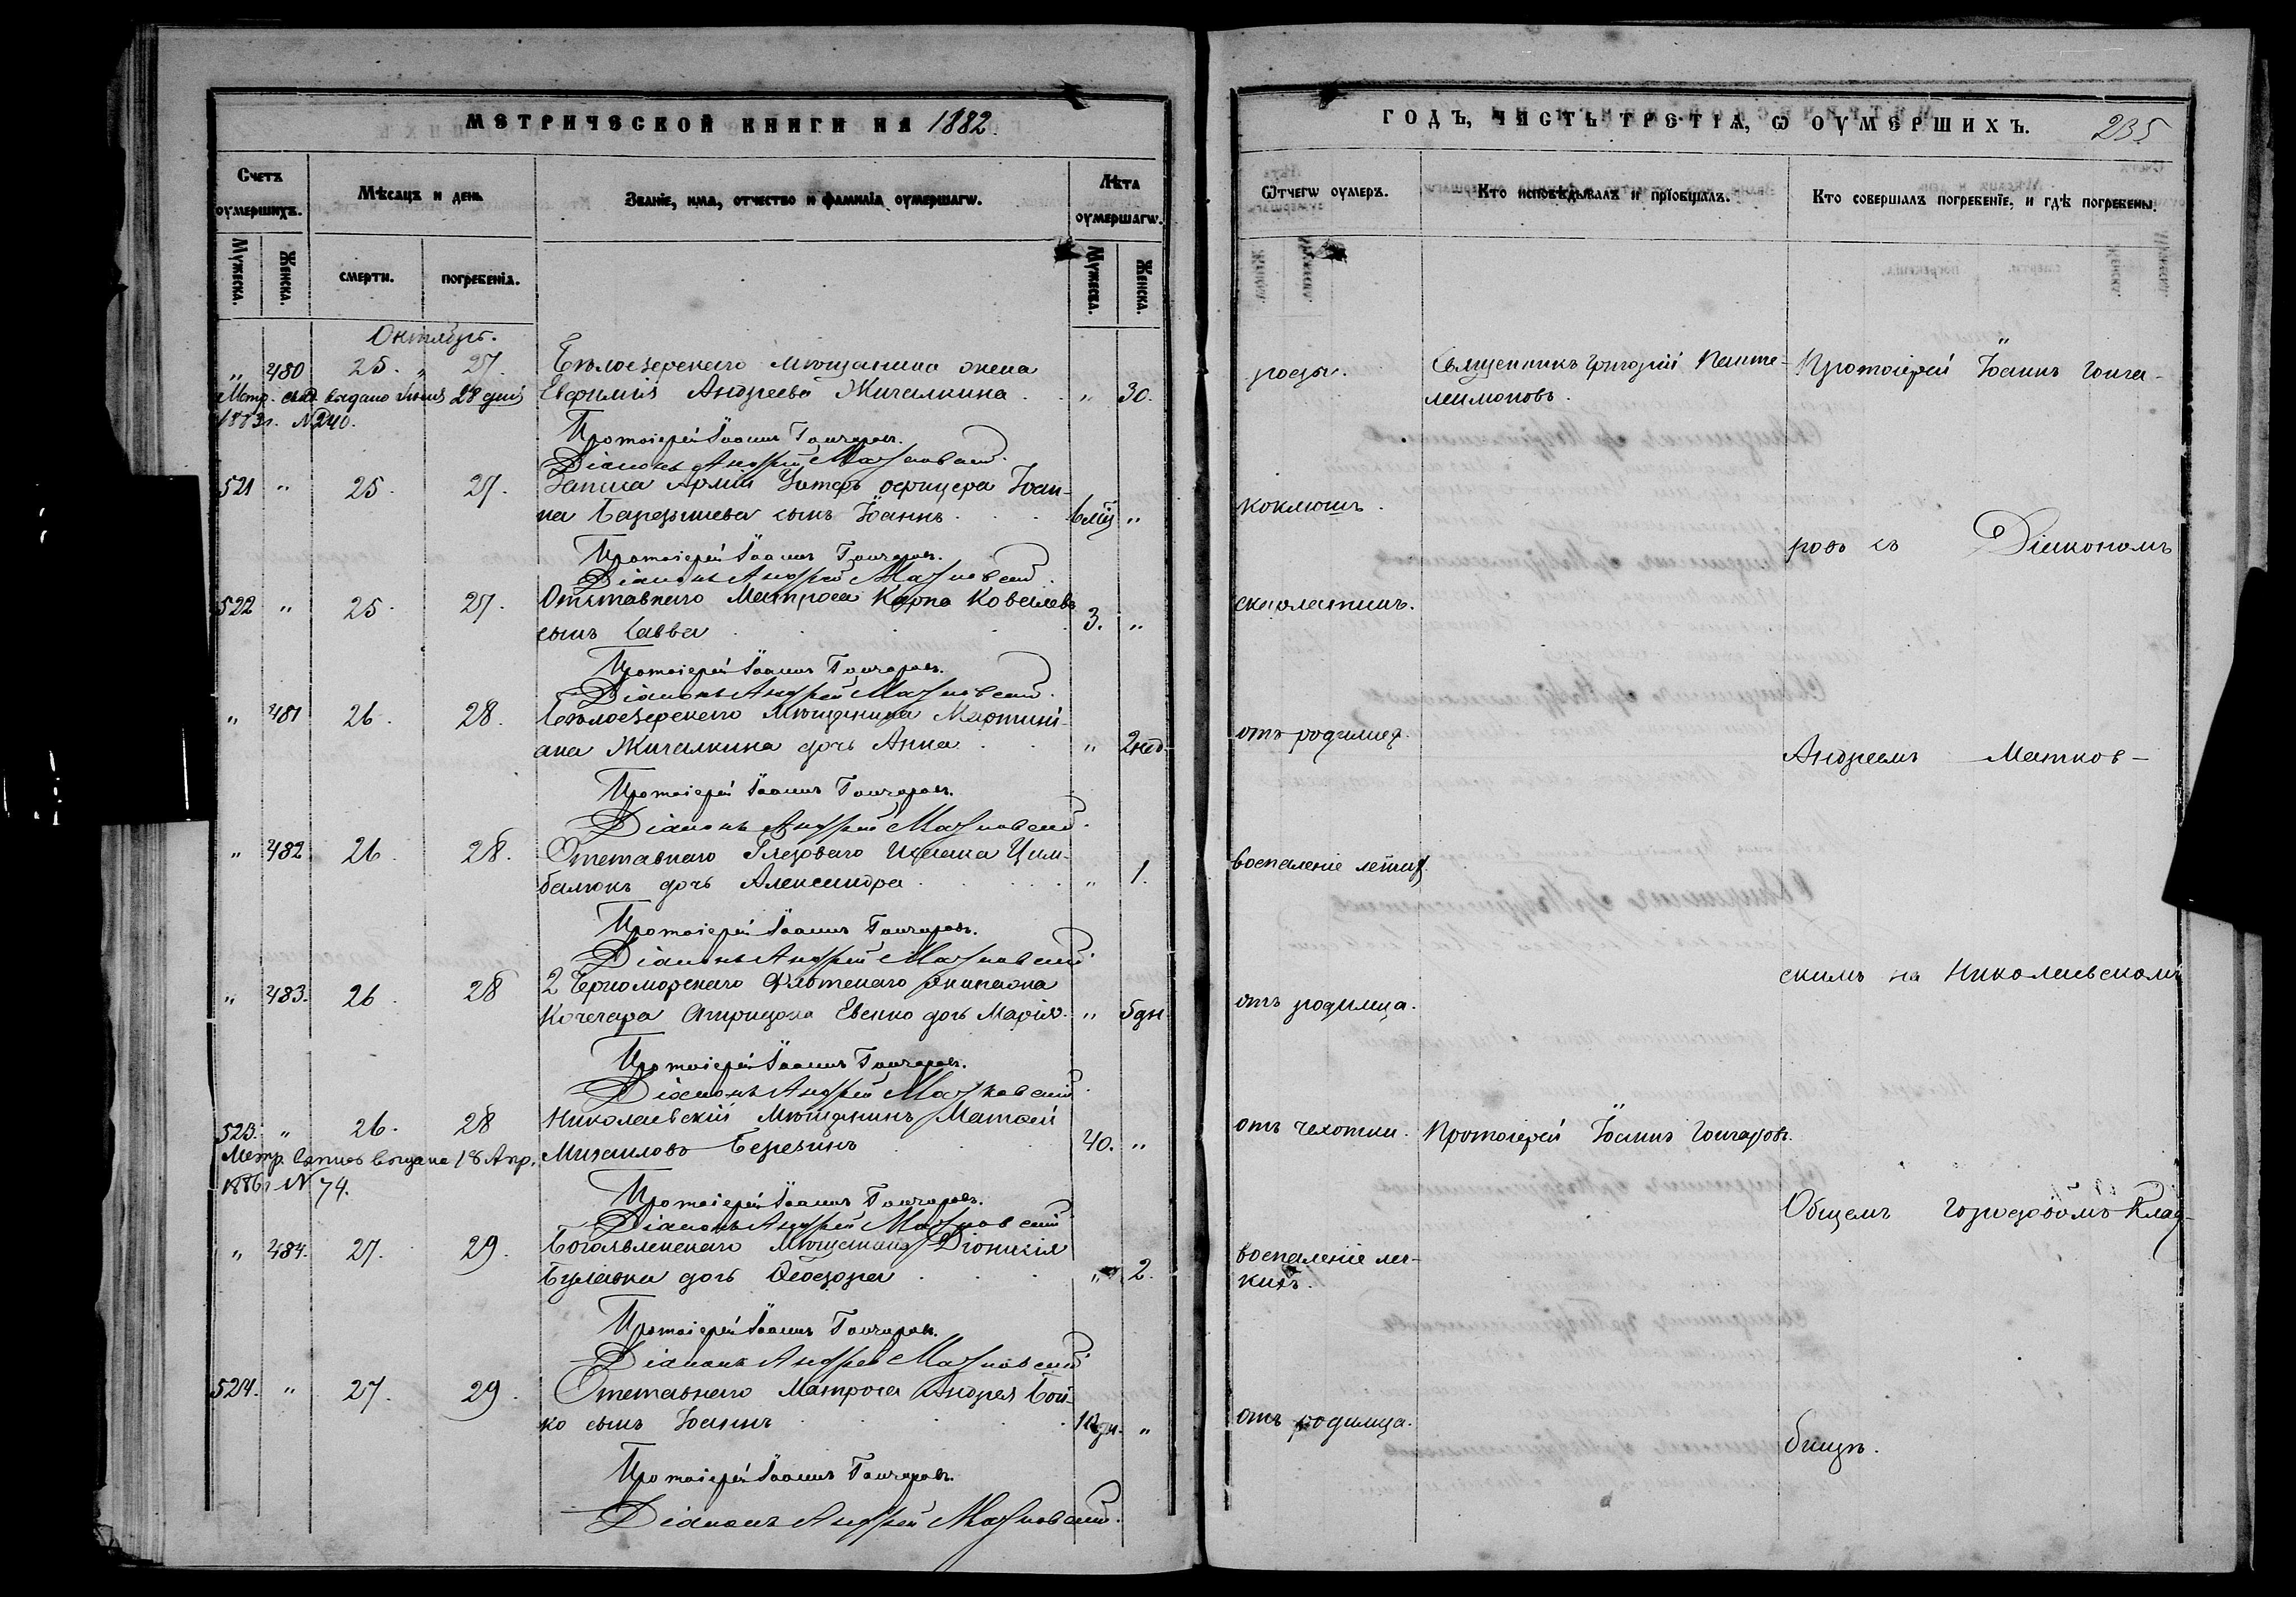 МЕТРИЧЕСКОЙ КНИГИ НА 1882
Счетъ
оумершихъ.
Мѣсяцъ и день
Званіе, имя, отчество и фамилія оумершагѡ.
Лѣта
оумершагѡ.
Мужеска.
Женска.
смерти.
погребенія.
Мужеска.
Женска.
Октябрь.
„ 480 25. „ 27. Бѣлоезерскаго Мѣщанина жена
Метр. свид. выдано 28 дня Евфимія Андреева Жигалкина „ 30.
1883г. № 240.
Протоіерей Іоаннъ Гончаровъ.
Діаконъ Андрей Матковскій
521 „ 25. 27. Запаса Арміи Унтеръ офицера Іоан-
на сынъ Іоаннъ „
Протоіерей Іоаннъ Гончаровъ.
Діаконъ Андрей Матковскій
522 „ 25. 27. Отставнаго Матроса Карпа Ковалева
сынъ Савва 3. „
Протоіерей Іоаннъ Гончаровъ.
Діаконъ Андрей Матковскій
„ 481 26. 28. Бѣлоезерскаго Мѣщанина Мартині-
ана Жигалкина дочь Анна „ 2 нед.
Протоіерей Іоаннъ Гончаровъ.
Діаконъ Андрей Матковскій
„ 482. 26. 28. Отставнаго Рядоваго Цим-
балюкъ дочь Александра „ 1.
Протоіерей Іоаннъ Гончаровъ.
Діаконъ Андрей Матковскій
„ 483. 26. 28 2 Черноморскаго Флотскаго Экипажа
Кочегара Спиридона Евенко дочь Марія „ 5 дн.
Протоіерей Іоаннъ Гончаровъ.
Діаконъ Андрей Матковскій
523. „ 26. 28 Николаевскій Мѣщанинъ Матѳей
Метр. выдана 18 Апр. Михаиловъ Березинъ 40. „
1886г № 74.
Протоіерей Іоаннъ Гончаровъ.
Діаконъ Андрей Матковскій
„ 484. 27. 29. Богоявленскаго Мѣщанина Діонисія
дочь Ѳеодора „ 2.
Протоіерей Іоаннъ Гончаровъ.
Діаконъ Андрей Матковскій
524. „ 27. 29. Отставнаго Матроса Андрея Бой-
ко сынъ Іоаннъ „
Протоіерей Іоаннъ Гончаровъ.
Діаконъ Андрей Матковскій
ГОДЪ, ЧАСТЬ ТРЕТІЯ, Ѡ ОУМЕРШИХЪ. 235
Ѿтчегѡ оумеръ.
Кто исповѣдывалъ и пріобщалъ.
Кто совершалъ погребеніе, и гдѣ погребены.
роды. Священникъ Григорій Панте- Протоіерей Іоаннъ Гонча-
леимоновъ.
коклюшъ.
ровъ съ Діакономъ
скарлатины.
отъ родимца.
Андреемъ Матков-
воспаленіе легких
скимъ на Николаевскомъ
отъ родимца.
отъ чехотки. Протоіерей Іоаннъ Гончаровъ.
Общемъ городовомъ клад-
воспаленіе лег-
кихъ.
отъ родимца.
бищѣ.